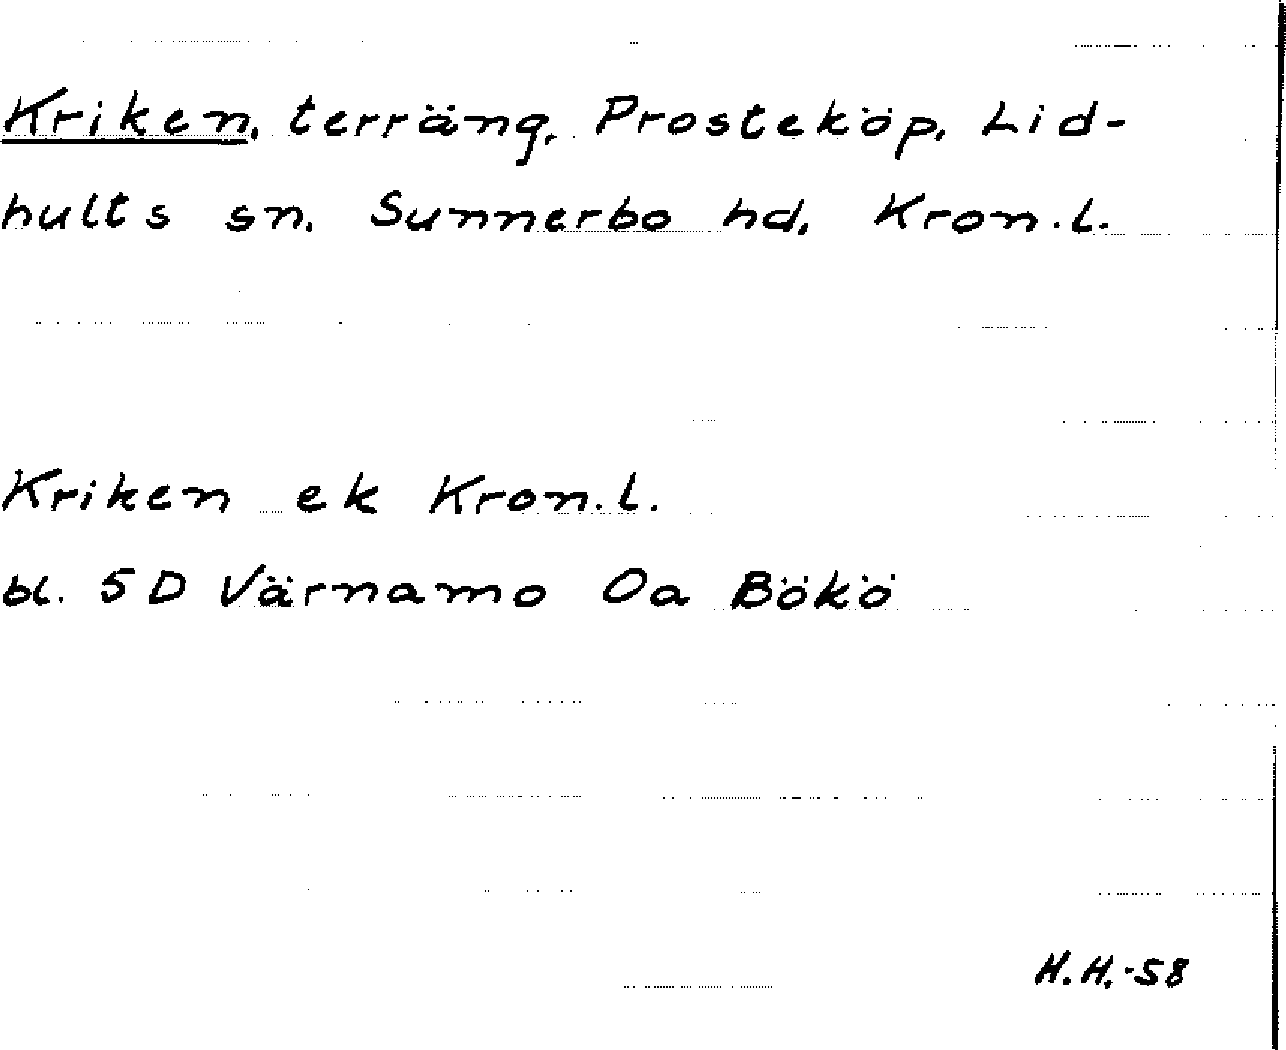 Kriken, terräng, Prosteköp, Lid-
hults sn, Sunnerbo hd, Kron.l.
Kriken ek Kron.l.
bl. 5 D Värnamo Oa Bökö
H.H.-58